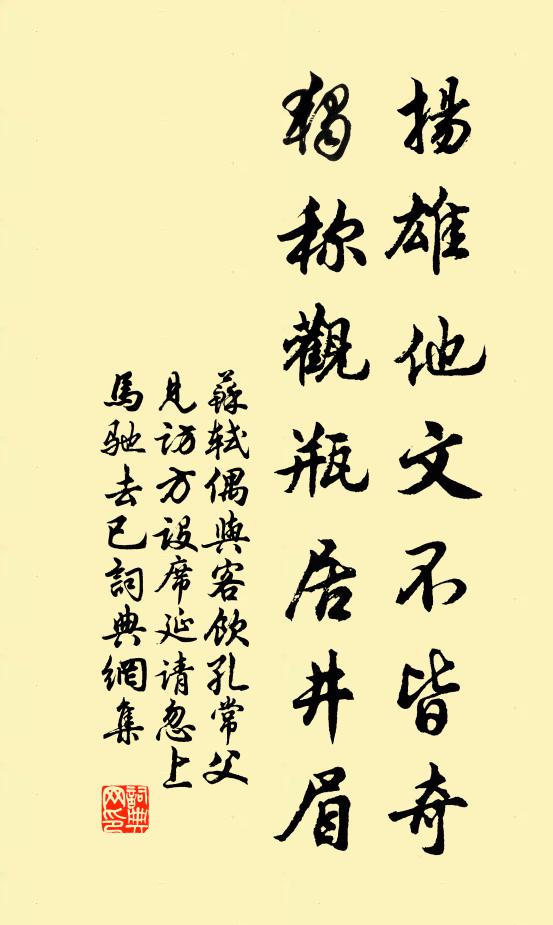 揚雄他文不皆奇
獨称觀瓶居井眉
蘇軾偶與客飲孔常父
見訪方設席延請忽上
馬馳去已詞典網集
詞典網印